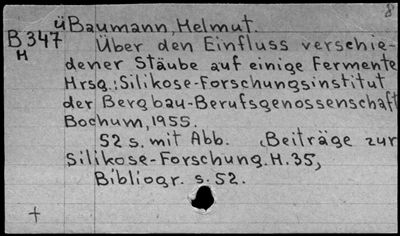 8
ü Baumann, Helmut.
B 347
H
Über den Einfluss verschie-
dener Stäube auf einige Fermente
Hrsg.: Silikose-Forschungsinstitut
der Bergbau-Berufsgenossenschaft
Bochum, 1955.
52 s. mit Abb. (Beiträge zur
Silikose-Forschung. H. 35,
Bibliogr. s. 52.